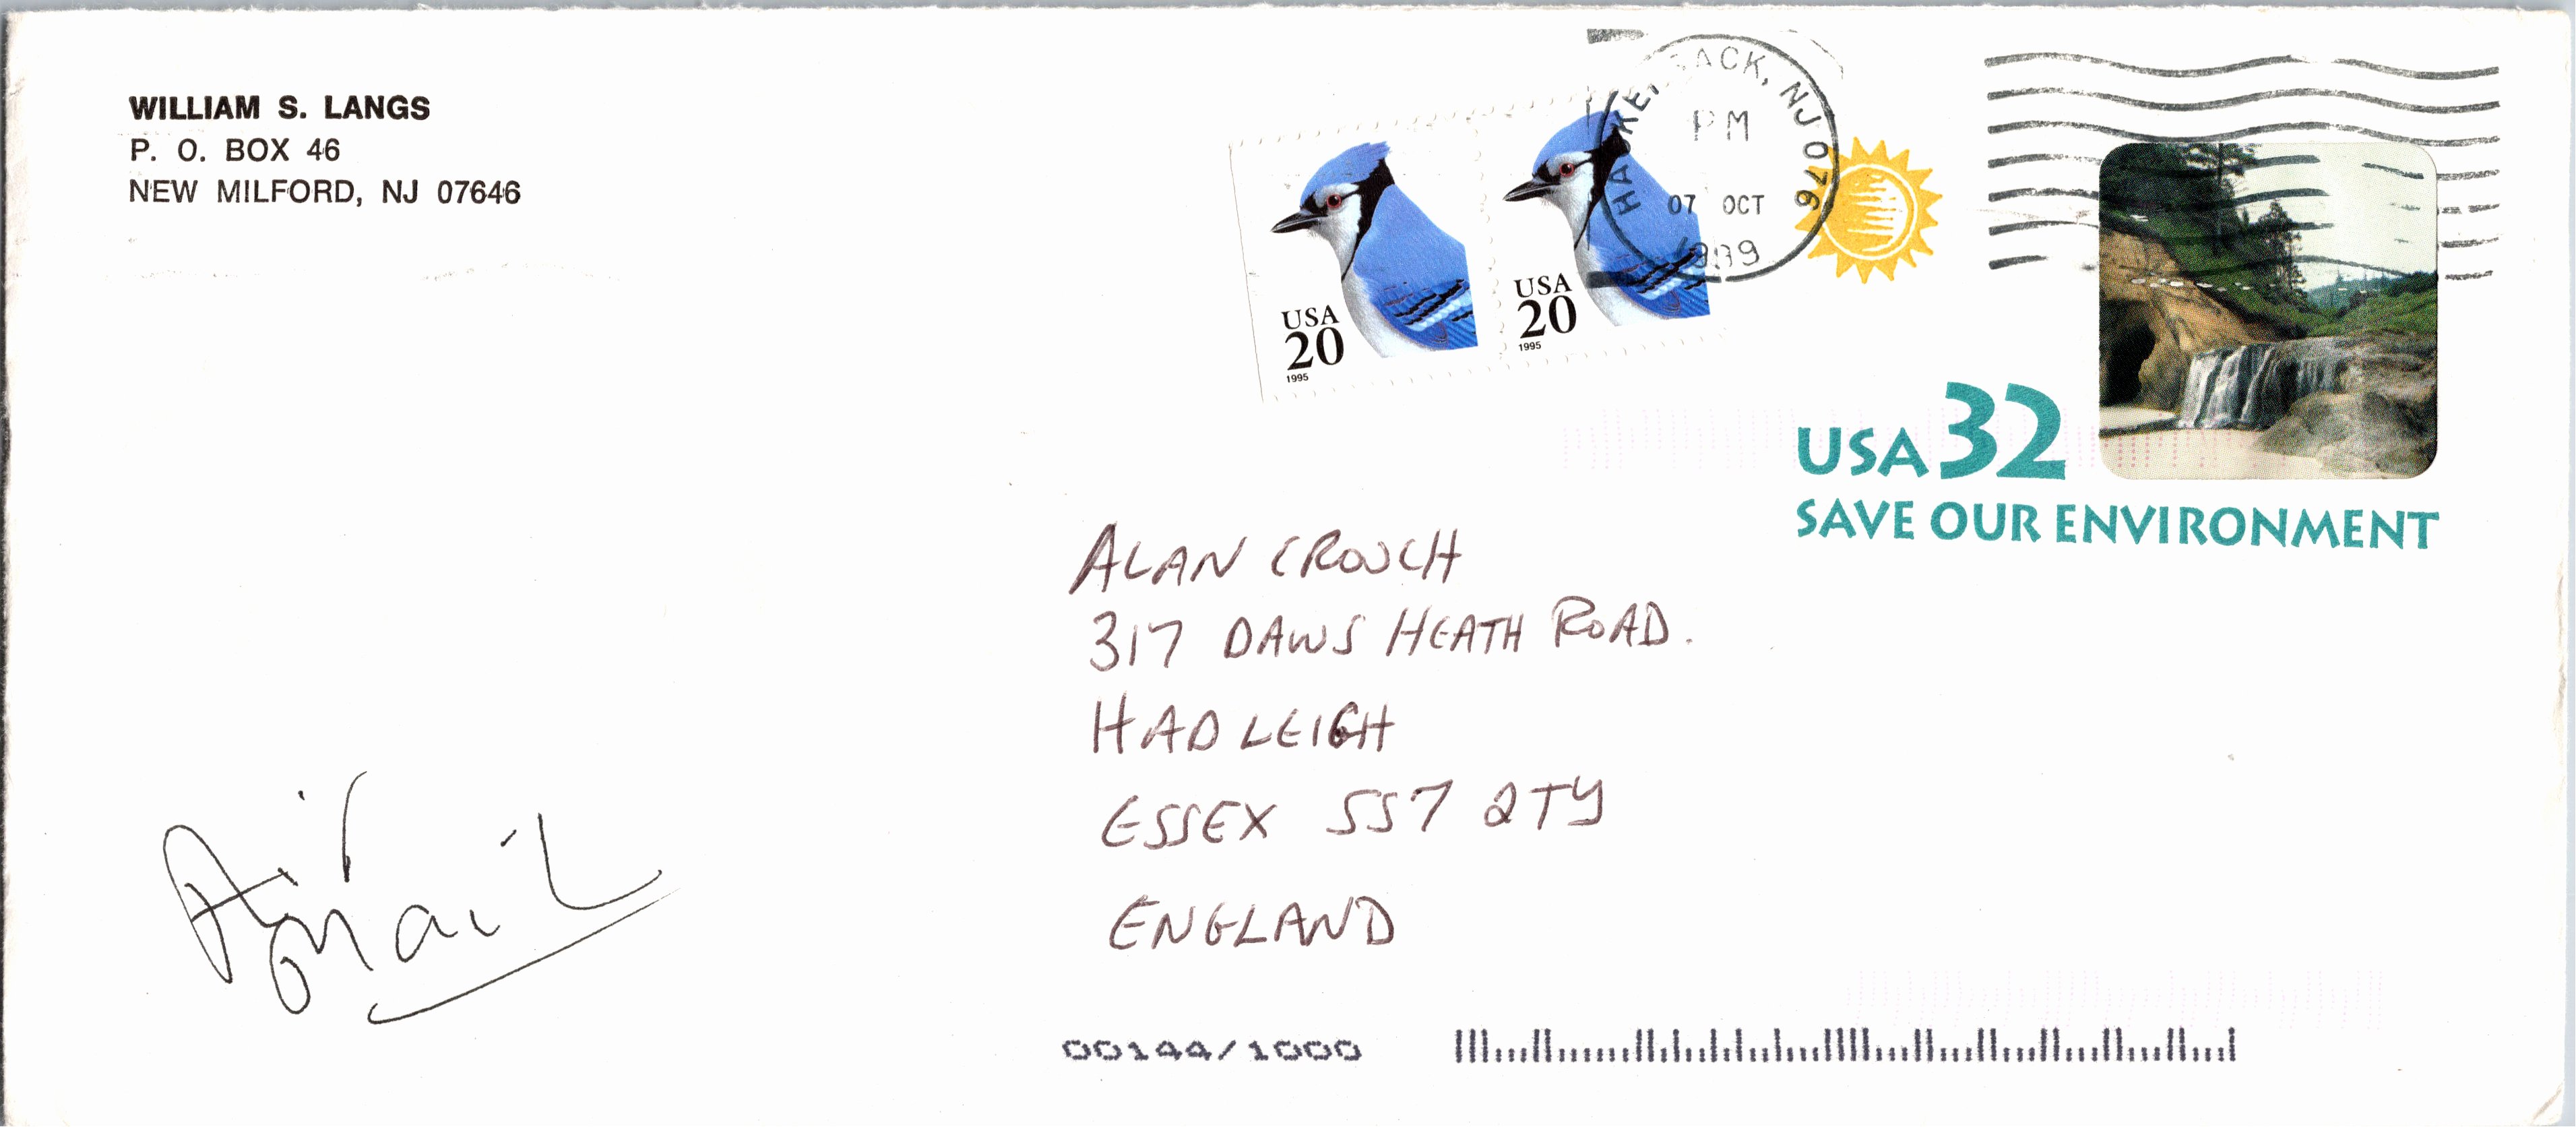 WILLIAM S. LANGS
P. O. BOX 46
NEW MILFORD, NJ 07646
USA
20
1995
USA
20
1995
HACKENSACK, NJ 076
PM
07 OCT
1999
USA 32
SAVE OUR ENVIRONMENT
ALAN CROUCH
317 DAWS HEATH ROAD.
HADLEIGH
ESSEX SS7 2TY
ENGLAND
Air
Mail
00144/1000